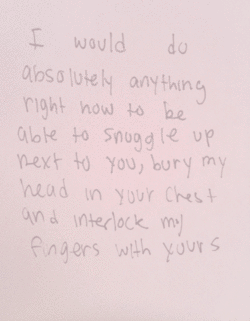 I would do
absolutely anything
right now to be
able to snuggle up
next to you, bury my
head in your chest
and interlock my
fingers with yours